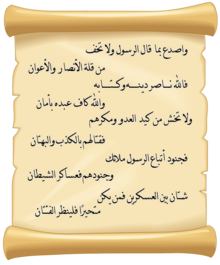 واصدع بما قال الرسول ولا تخف
من قلة الأنصار والأعوان
فالله ناصر دينه وكتابه
والله كاف عبده بأمان
ولا تخش من كيد العدو ومكرهم
فقتالهم بالكذب والبهتان
فجنود أتباع الرسول ملائك
وجنودهم فعساكر الشيطان
شتان بين العسكرين فمن يكن
متحيرا فلينظر الفئتان